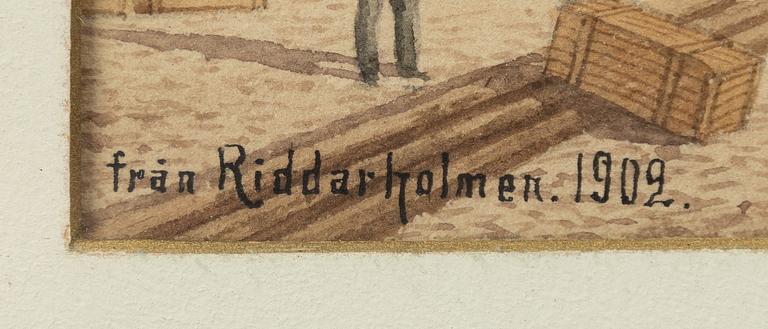 från Riddarholmen. 1902.